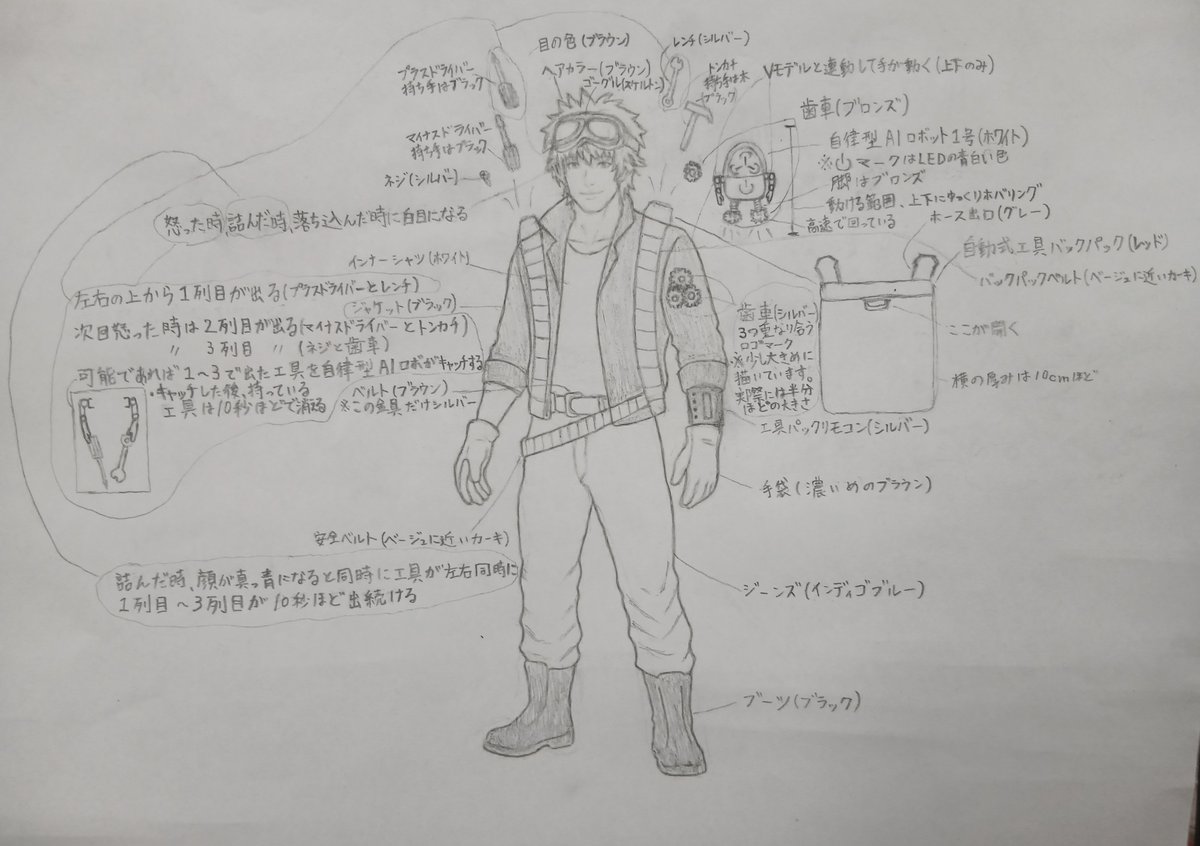 目の色(ブラウン)
ヘアカラー(ブラウン)
ゴーグル(スケルトン)
レンチ(シルバー)
トンカチ
持ち手は木
ブラック
プラスドライバー
持ち手はブラック
マイナスドライバー
持ち手はブラック
ネジ(シルバー)
Vモデルと連動して手が動く(上下のみ)
歯車(ブロンズ)
自律型AIロボット1号(ホワイト)
※⏻マークはLEDの青白い色
脚はブロンズ
動ける範囲、上下にゆっくりホバリング
高速で回っている
ホース出口(グレー)
自動式工具バックパック(レッド)
バックパックベルト(ベージュに近いカーキ)
ここが開く
横の厚みは10cmほど
怒った時、詰んだ時、落ち込んだ時に白目になる
インナーシャツ(ホワイト)
左右の上から1列目が出る(プラスドライバーとレンチ)
ジャケット(ブラック)
次目怒った時は2列目が出る(マイナスドライバーとトンカチ)
〃 3列目 〃 (ネジと歯車)
可能であれば1~3で出た工具を自律型AIロボがキャッチする
・キャッチした後、持っている
工具は10秒ほどで消る
ベルト(ブラウン)
※この金具だけシルバー
歯車(シルバー)
3つ重なり合う
ロゴマーク
※少し大きめに
描いています。
実際には半分
ほどの大きさ
工具パックリモコン(シルバー)
手袋(濃いめのブラウン)
安全ベルト(ベージュに近いカーキ)
詰んだ時、顔が真っ青になると同時に工具が左右同時に
1列目~3列目が10秒ほど出続ける
ジーンズ(インディゴブルー)
ブーツ(ブラック)